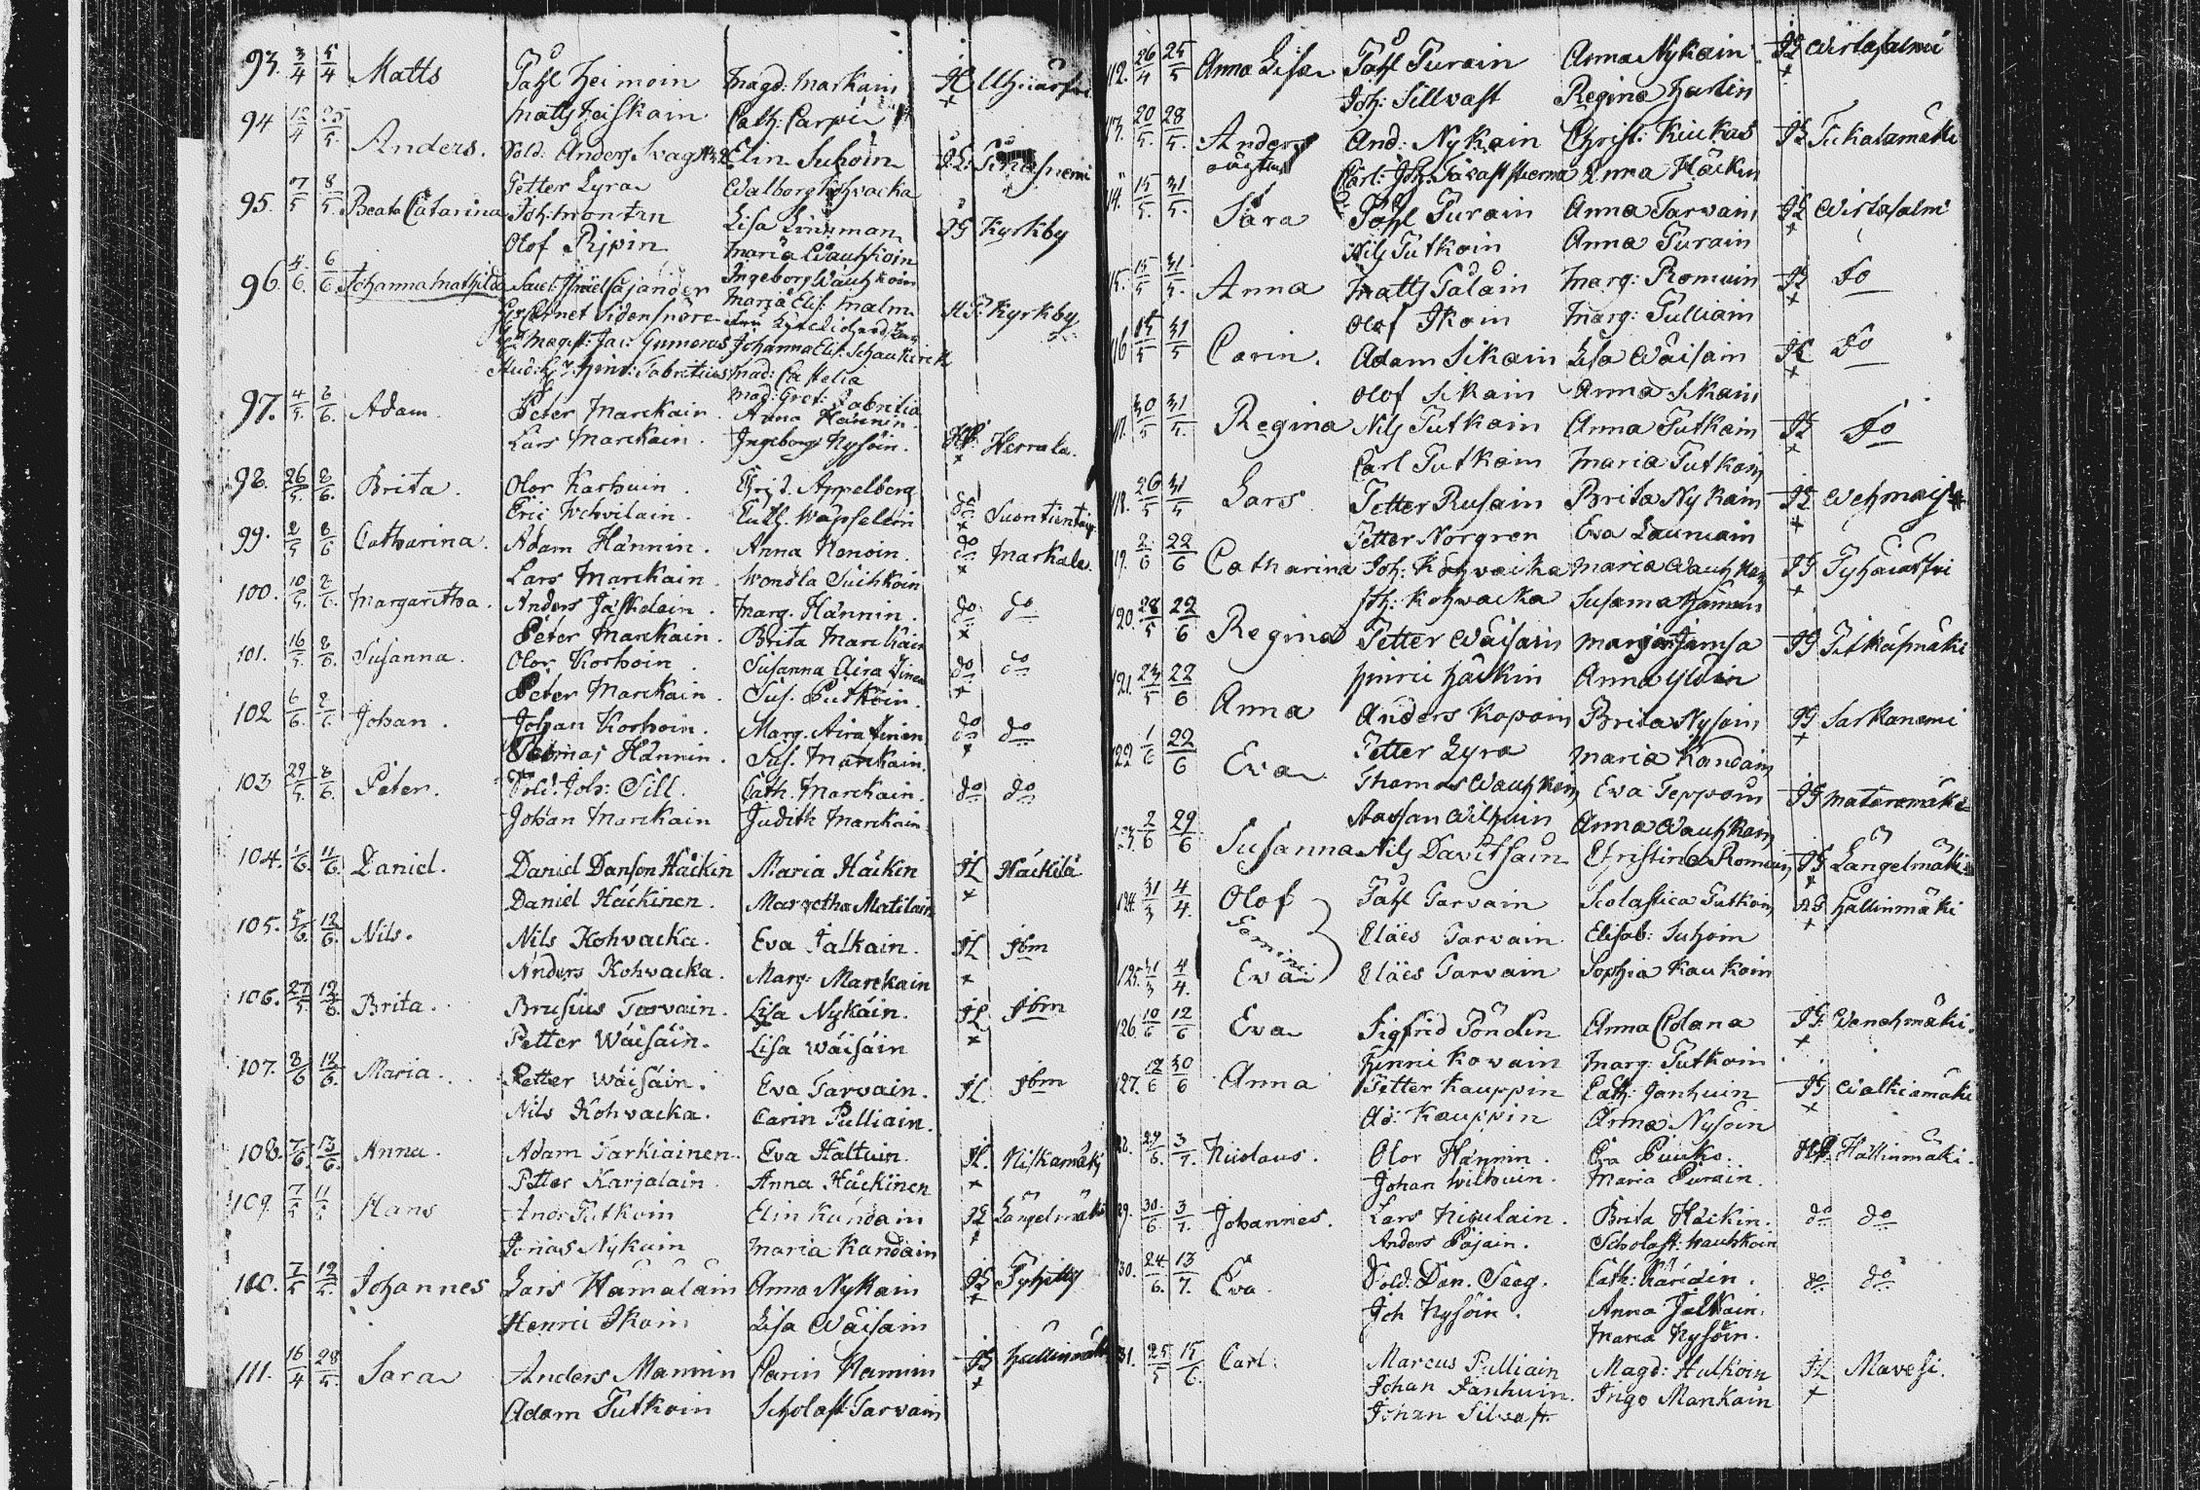 93. 3/4 5/4 Matts Påhl Heimoin Magd: Markain JL
Matts Heiskain Cath: Carpin
94 12/4 25/5. Anders. Sold: Anders Svag Elin Suhoin
Petter Lyra Walborg Kohvacka
95. 7/5 8/5. Beata Catarina Joh: Montan Lisa Lindman JG Kyrkby
Olof Pipin Maria Wauhkoin
96. 4/6. 6/6 Johanna Mathilda Ingeborg Wauhkoin
Maria Elis: Malm Kyrkby
Johanna Elis:
Mad: Castelia
Mad: Gret: Fabritia
97. 4/5. 6/6. Adam. Peter Marckain. Anna Hännin.
Lars Marckain. Ingeborg Nysöin. HP. Herrala.
98. 26/5. 8/6. Brita. Olor Karhuin. Christ. Appelberg
Eric Wehvilain. Cath. do
99. 2/5 8/6 Catharina. Adam Hännin. Anna Kenoin. do Markala.
Lars Marckain. Wendla
100. 10/5. 8/6. Margaretha. Anders Jäskelain. Marg. Hännin. do do
Peter Marckain. Brita Marckain
101. 16/5. 8/6. Susanna. Olor Korhoin. Susanna Airaxinen do do
Peter Marckain. Sus. Putkoin.
102 6/6. 8/6 Johan. Johan Korhoin. Marg. Airaxinen do do
Thomas Hännin. Sus. Marckain.
103 29/5. 8/6. Peter. Sold. Joh: Sill. Cath. Marckain. do do
Johan Marckain Judith Marckain
104. 1/6. 11/6. Daniel. Daniel Danson Häckin Maria Häckin JL Häckilä
Daniel Häckinen. Margetha Matilain
105. 5/6. 12/6. Nils. Nils Kohvacka. Eva Jalkain. JL Ibm
Anders Kohvacka. Marg: Marckain
106. 27/5. 12/6. Brita. Brusius Tarvain. Lisa Nykäin. JL Ibm
Petter Wäisäin. Lisa Wäisäin
107. 8/6 12/6. Maria. Petter Wäisäin. Eva Tarvain. JL Ibm
Nils Kohvacka. Carin Pulliain.
108. 7/6. 13/6. Anna. Adam Tarkiainen. Eva Hältuin. JL. Niskamäki
Petter Karjalain. Anna Häckinen
109. 7/5 11/5 Hans And: Putkoin Elin Kandain JL Längelmäki
Jonas Nykain Maria Kandain
110. 7/5 12/5. Johannes Lars Hämäläin Anna Nykain JL
Henric Ikoin Lisa Wäisäin
111. 16/4 28/5. Sara Anders Mannin Carin Hännin JL Hällinmäki
Adam Putkoin Scholast: Tarvain
112. 26/4 25/5 Anna Lisa Påhl Purain Anna Nykain JL Wirtasalmi
Joh: Sillvast Regina Harlin
113. 20/5. 28/5. Anders And: Nykain Christ: Kiukas JL
Augustus Carl: Joh: Tavaststierna Anna Häckin
114. 15/5. 31/5. Sara Påhl Purain Anna Tarvain JL Wirtasalmi
Nils Putkoin Anna Purain
115. 15/5. 31/5. Anna Matts Pålain Marg: Romuin JL Do
Olof Ikoin Marg: Pulliain
116 15/5 31/5 Carin. Adam Sikain Lisa Wäisäin JL Do
Olof Sikain Anna Sikain
117. 30/5 31/5. Regina Nils Putkoin Anna Putkoin JL Do
Carl Putkoin Maria Putkoin
118. 26/5 31/5 Lars Petter Rusain Brita Nykain JL Wehmais
Petter Norgren Eva Launiain
119. 2/6 22/6 Catharina Joh: Kohvacka Maria Wauhkoin JG Pyhäjärfvi
Joh: Kohvacka Susanna
120. 28/5 22/6 Regina Petter Wäisäin Marja Jamsa JG Pitkäpmäki
Hinric Häckin Anna Ylöin
121. 23/5 22/6 Anna Anders Kopoin Brita Nysoin JG Sarkanemi
Petter Lyra Maria Kandain
122 1/6 22/6 Eva Thomas Wauhkoin Eva Teppoin JG
Staffan Wilhuin Anna Wauhkoin
123. 2/6 29/6 Susanna Nils Davitsain Christina Romuin JG Längelmäki
124. 31/3 4/4. Olof Påhl Tarvain Scolastica Putkoin JG Hällinmäki
Gemini Eläis Tarvain Elisab: Suhoin
125. 31/3 4/4. Eva Eläis Tarvain Sophia Kaukoin
126. 10/6 12/6 Eva Sigfrid Pöndin Anna Colana JG. Wenehmäki
Hinric Kovain Marg: Putkoin
127. 12/6 30/6 Anna Petter Kauppin Cath: Janhuin JG Walkiamäki
Ad: Kauppin Anna Nysoin
128. 29/6. 3/7. Nicolaus. Olor Hännin. Eva Puuko. HP. Hällinmäki.
Johan Wilhuin. Maria Purain.
129. 30/6 3/7. Johannes. Lars Nigulain. Brita Häckin. do do
Anders Pajain. Scholast: Wauhkoin
130. 24/6. 13/7. Eva. Sold. Dan. Seeg. Cath: do do
Joh Nysöin. Anna Jalkain.
Maria Nysöin.
131. 25/5 15/6. Carl. Marcus Pulliain Magd: Hulkoin JL Mavesi.
Johan Janhuin. Inge Mankain
Johan Silvast